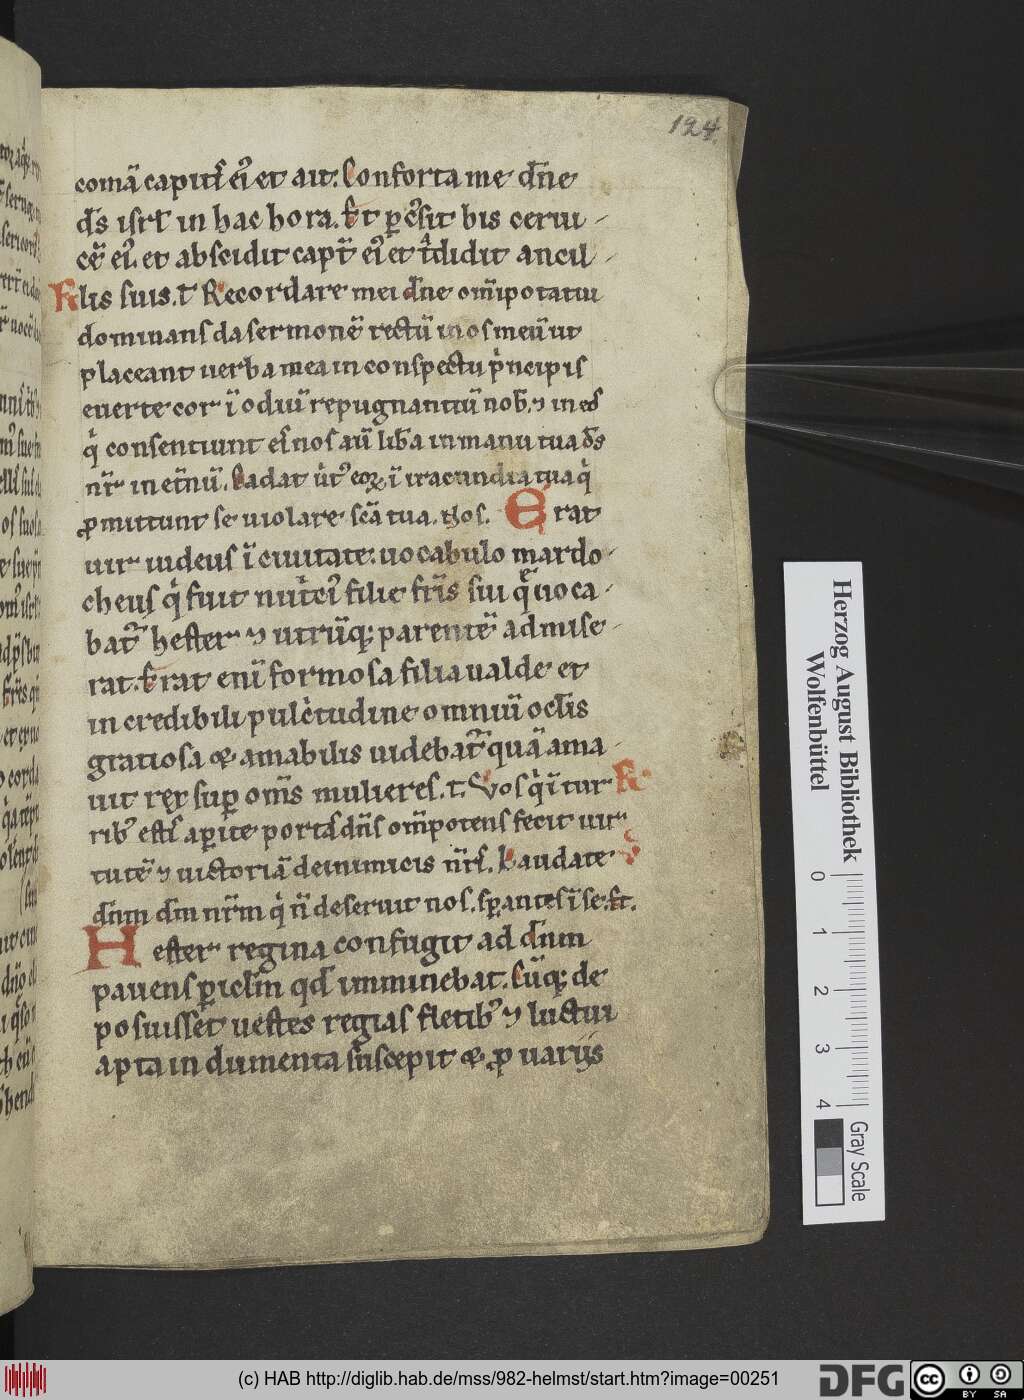 124.
comā capitꝭ eiꝰ et ait. Conforta me dn̄e
ds̄ isrl̄ in hac hora. Et p̄cꝰsit bis cerui-
cē eiꝰ. et abscidit capt̄ eiꝰ et tͣdidit ancil-
lis suis. R Recordare mei dn̄e om̄ipotatui
dominans da sermonē rectū in os meū ut
placeant uerba mea in conspectu pͥncipis
euerte cor ī odiū repugnantiū nob̄. ⁊ in eos
qͥ consentiunt ei nos aū libͣa in manu tua ds̄
nr̄ in et̄nū. Cadat uͥtꝰ eoꝝ ī iracundia tua qͥ
ꝓmittunt se uiolare scā tua. Nos. Erat
uir iudeus ī ciuitate. uocabulo mardo-
cheus qͥ fuit nutͥciꝰ filie fr̄is sui q̄ uoca-
bat᷑ hester ⁊ utrūqꝫ parentē admise-
rat. Erat enī formosa filia ualde et
incredibili pulcͥtudine omniū oclis
gratiosa & amabilis uidebat᷑ quā ama-
uit rex suꝑ oms̄ mulieres. Vos qͥ ī tur R
ribꝰ estis aperite portas dn̄s om̄potens fecit uir
tutē ⁊ uictoriā de inimicis nr̄is. Laudate
dnm̄ dm̄ nr̄m qͥ n̄ deseruit nos. sꝑantes ī se. Et.
Hester regina confugit ad dn̄m
pauens ꝑiclm̄ qd̄ imminebat. Cūqꝫ de
posuisset uestes regias fletibꝰ ⁊ luctui
apta indumenta suscepit & ꝓ uariis
Herzog August Bibliothek
Wolfenbüttel
0
1
2
3
4
Gray Scale
(c) HAB http://diglib.hab.de/mss/982-helmst/start.htm?image=00251
DFG
cc
BY SA